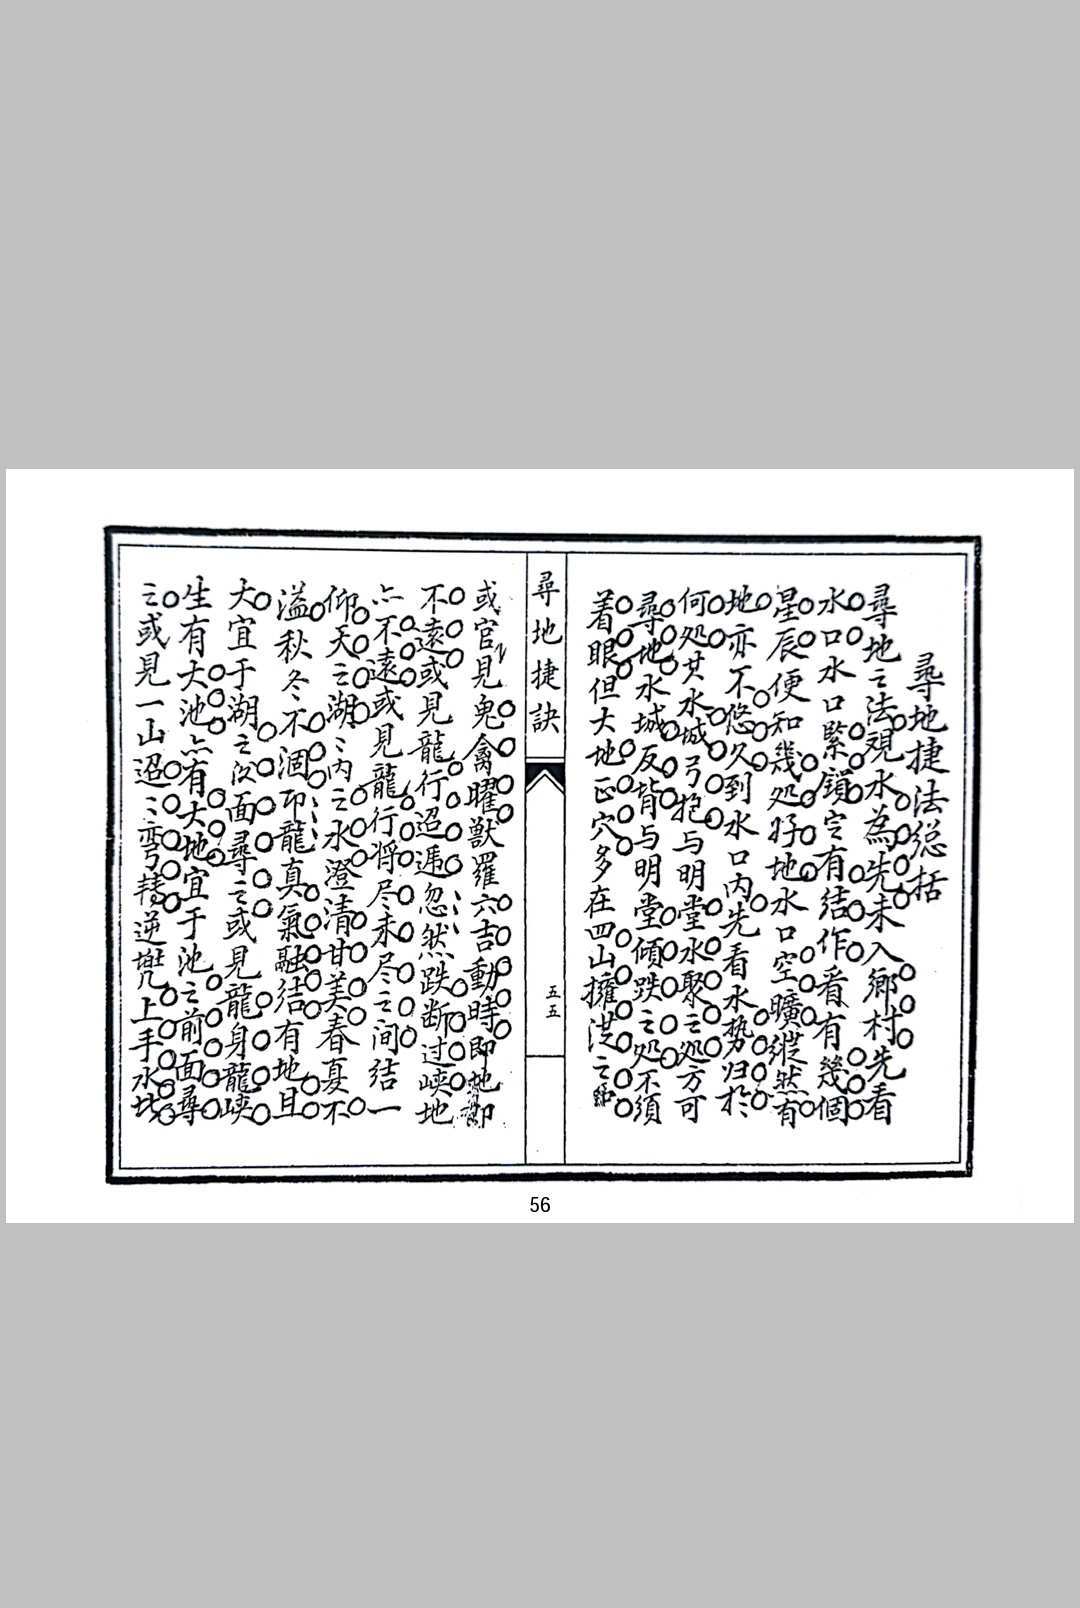 尋地捷法総括
尋地之法覌水為先未入鄉村先看
水口水口緊鎖定有結作看有幾個
星辰便知幾処好地水口空曠縱然有
地亦不悠久到水口内先看水势归於
何処其水城弓抱与明堂水聚之処方可
尋地水城反背与明堂傾跌之処不須
着眼但大地正穴多在四山擁从之
尋地捷訣
五五
或官見鬼禽曜獸羅六吉動時即地
不遠或見龍行迢遞忽然跌断过峡地
亦不遠或見龍行将尽未尽之间结一
仰天之湖湖内之水澄清甘美春夏不
溢秋冬不涸即龍真氣融结有地且
大宜于湖之后面尋之或見龍身龍峡
生有大池亦有大地宜于池之前面尋
之或見一山迢迢彎转逆兜上手水此
56